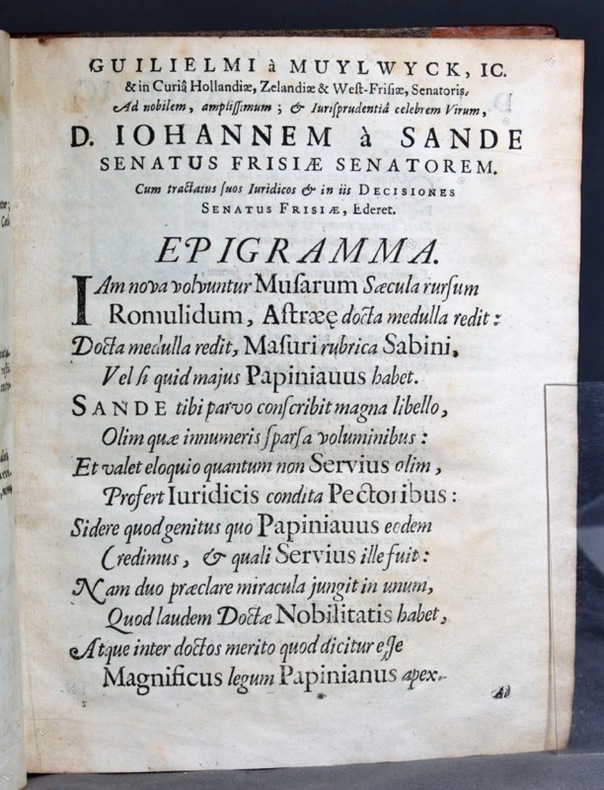 GUILIELMI à MUYLWYCK, IC.
& in Curiâ Hollandiæ, Zelandiæ & Weſt-Friſiæ, Senatoris,
Ad nobilem, ampliſſimum ; & Iuriſprudentiâ celebrem Virum,
D. IOHANNEM à SANDE
SENATUS FRISIÆ SENATOREM.
Cum tractatus ſuos Iuridicos & in iis DECISIONES
SENATUS FRISIÆ, Ederet.
EPIGRAMMA.
IAm nova volvuntur Muſarum Sæcula rurſum
Romulidum, Aſtrææ docta medulla redit :
Docta medulla redit, Maſuri rubrica Sabini,
Vel ſi quid majus Papiniauus habet.
SANDE tibi parvo conſcribit magna libello,
Olim quæ innumeris ſparſa voluminibus :
Et valet eloquio quantum non Servius olim,
Profert Iuridicis condita Pectoribus :
Sidere quod genitus quo Papiniauus eodem
Credimus, & quali Servius ille fuit :
Nam duo præclare miracula jungit in unum,
Quod laudem Doctæ Nobilitatis habet,
Atque inter doctos merito quod dicitur eſſe
Magnificus legum Papinianus apex.
Ad